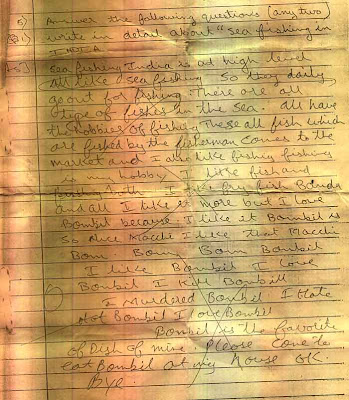 5) Answer the following questions (any two)
Q1) write in detail about "Sea fishing in
INDIA
Ans) Sea fishing India is at high level
all like sea fishing So they daily
go out for fishing There are all
type of fishes in the sea. All have
the hobbies of fishing These all fish which
are fished by the fisherman comes to the
market and I am like fishing fishing
is my hobby I like fish and
I like fry fish
and all I like it more but I love
Bombil because I like it Bombil is
So Nice Macchi I like that Macchi
Bom Bom Bom Bombil
I like Bombil I love
Bombil I Kill Bombill
I Murdered Bombil I Hate
Not Bombil I love Bombill
Bombil is the favorite
of Dish of mine. Please come to
eat Bombil at my house OK.
Bye.